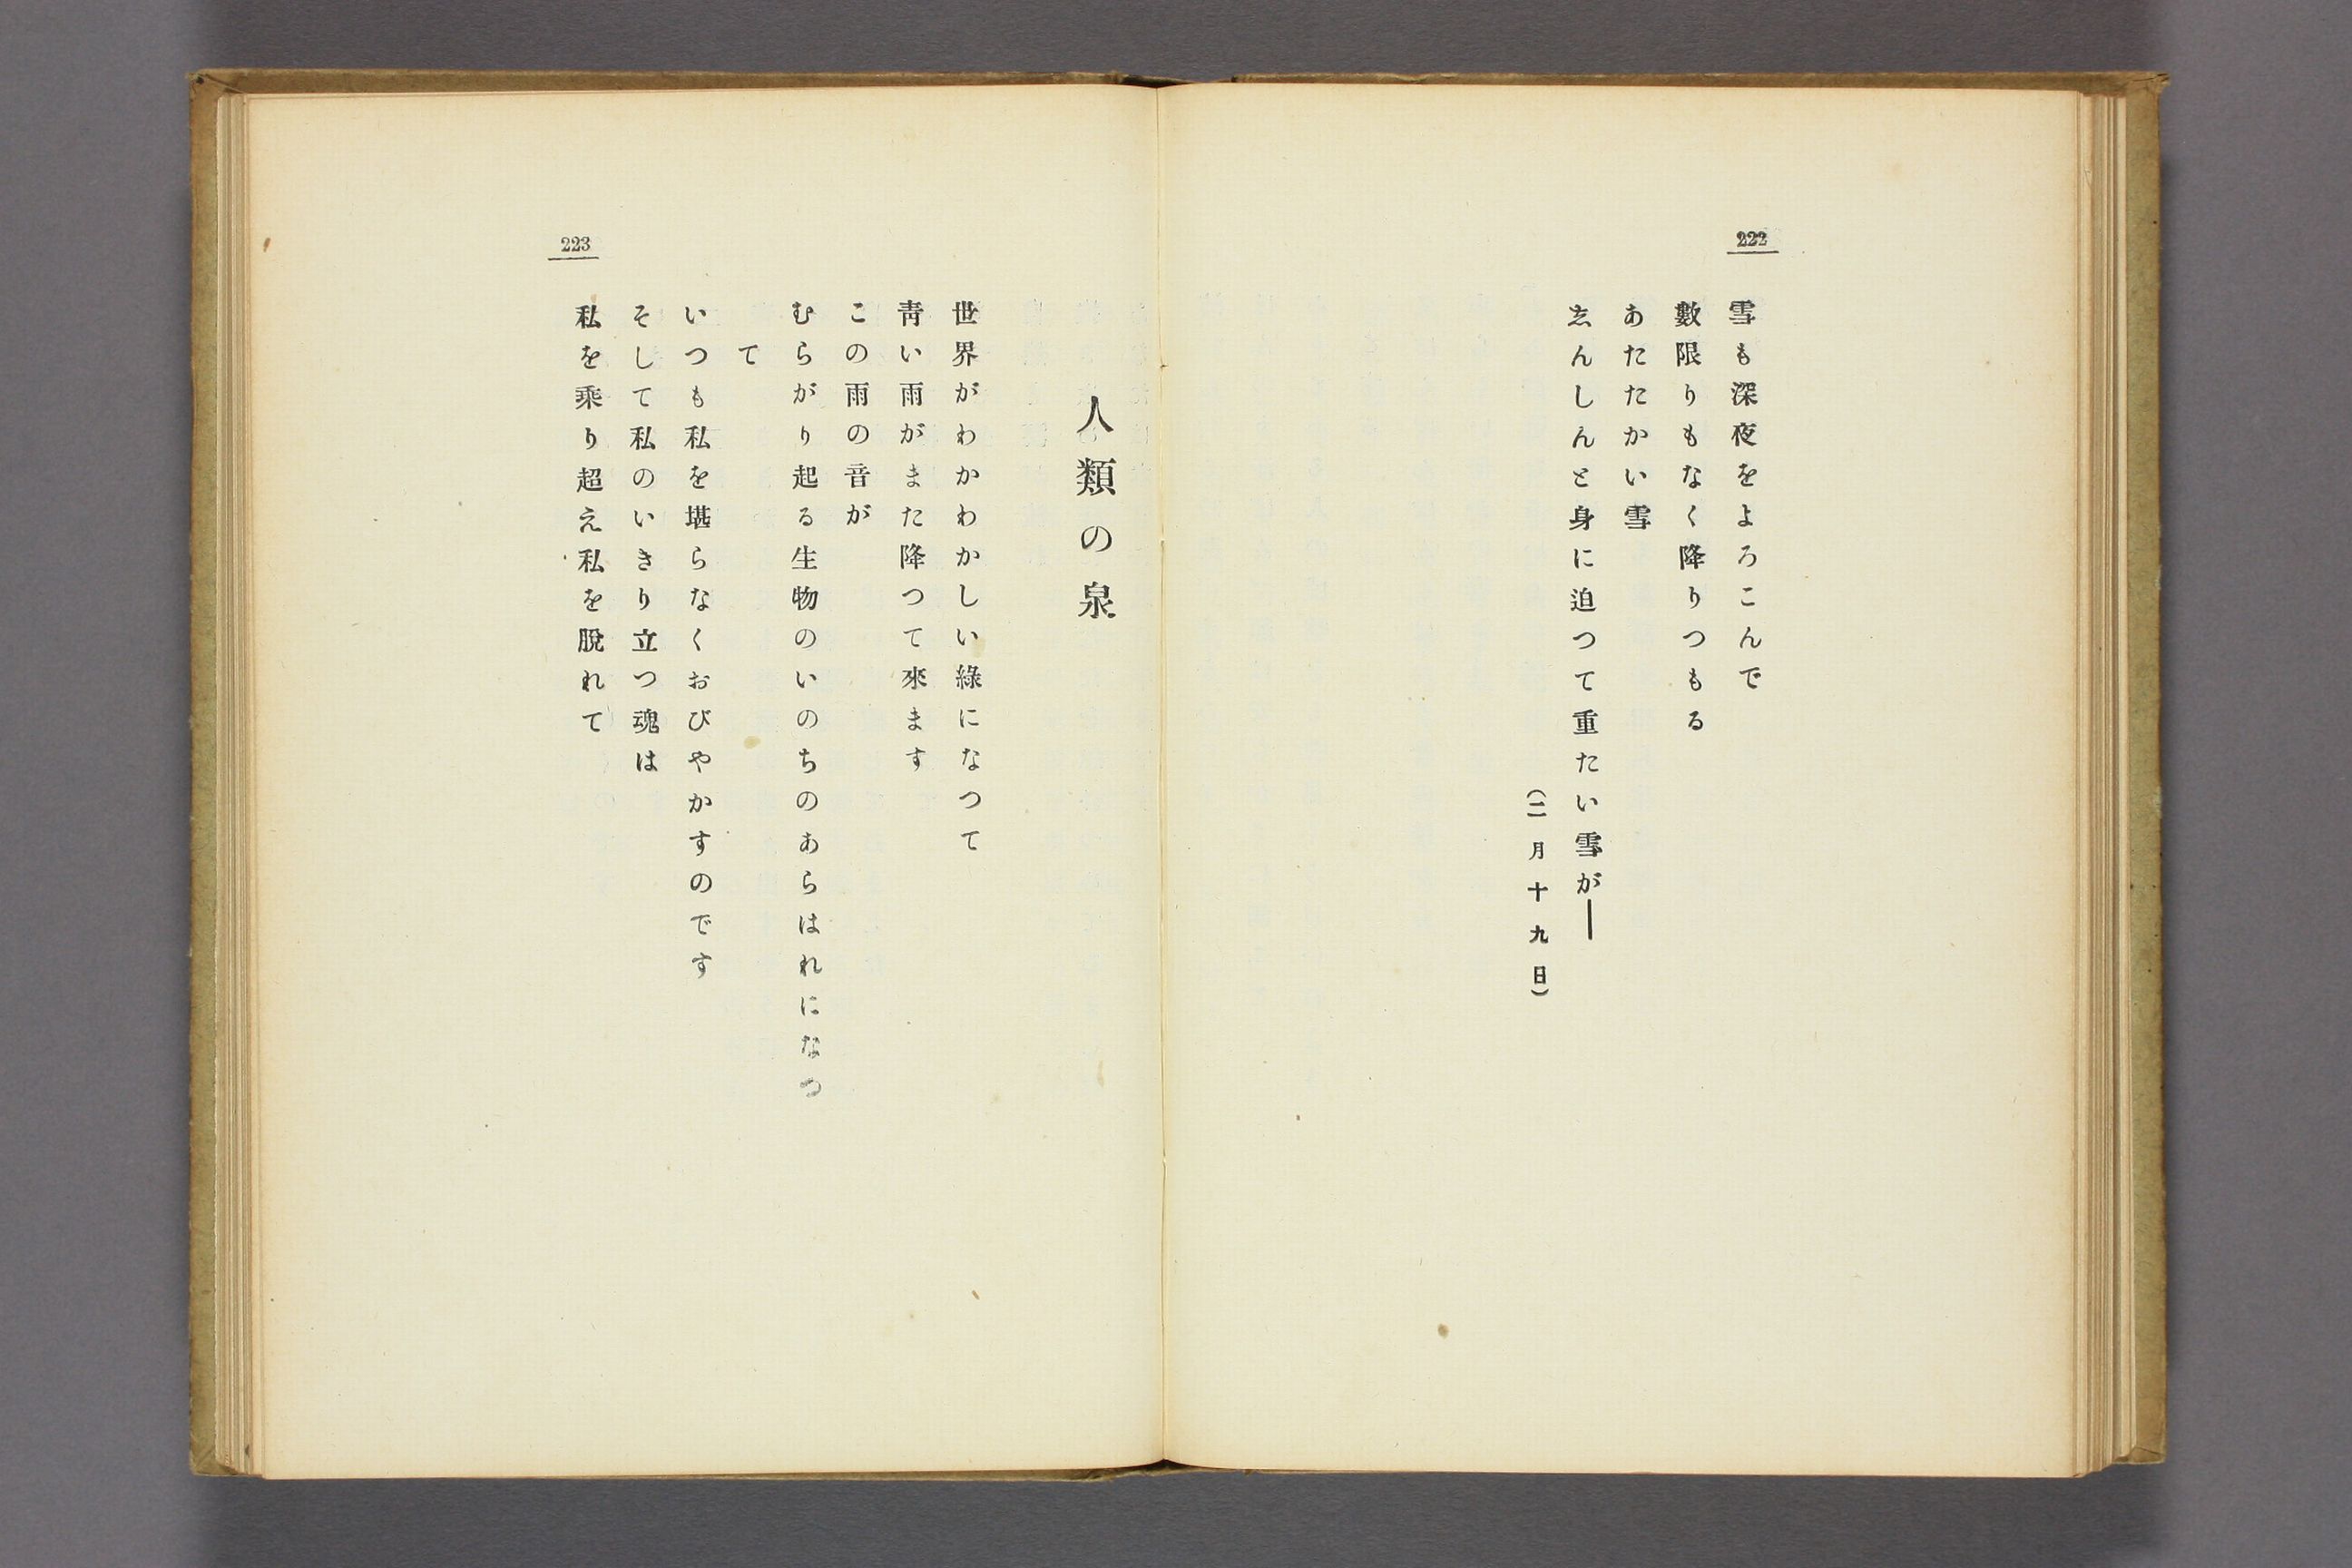 222
雪も深夜をよろこんで
數限りもなく降りつもる
あたたかい雪
志んしんと身に迫つて重たい雪が―
（二月十九日）
223
人類の泉
世界がわかわかしい綠になつて
靑い雨がまた降つて來ます
この雨の音が
むらがり起る生物のいのちのあらはれになつ
て
いつも私を堪らなくおびやかすのです
そして私のいきり立つ魂は
私を乘り超え私を脫れて